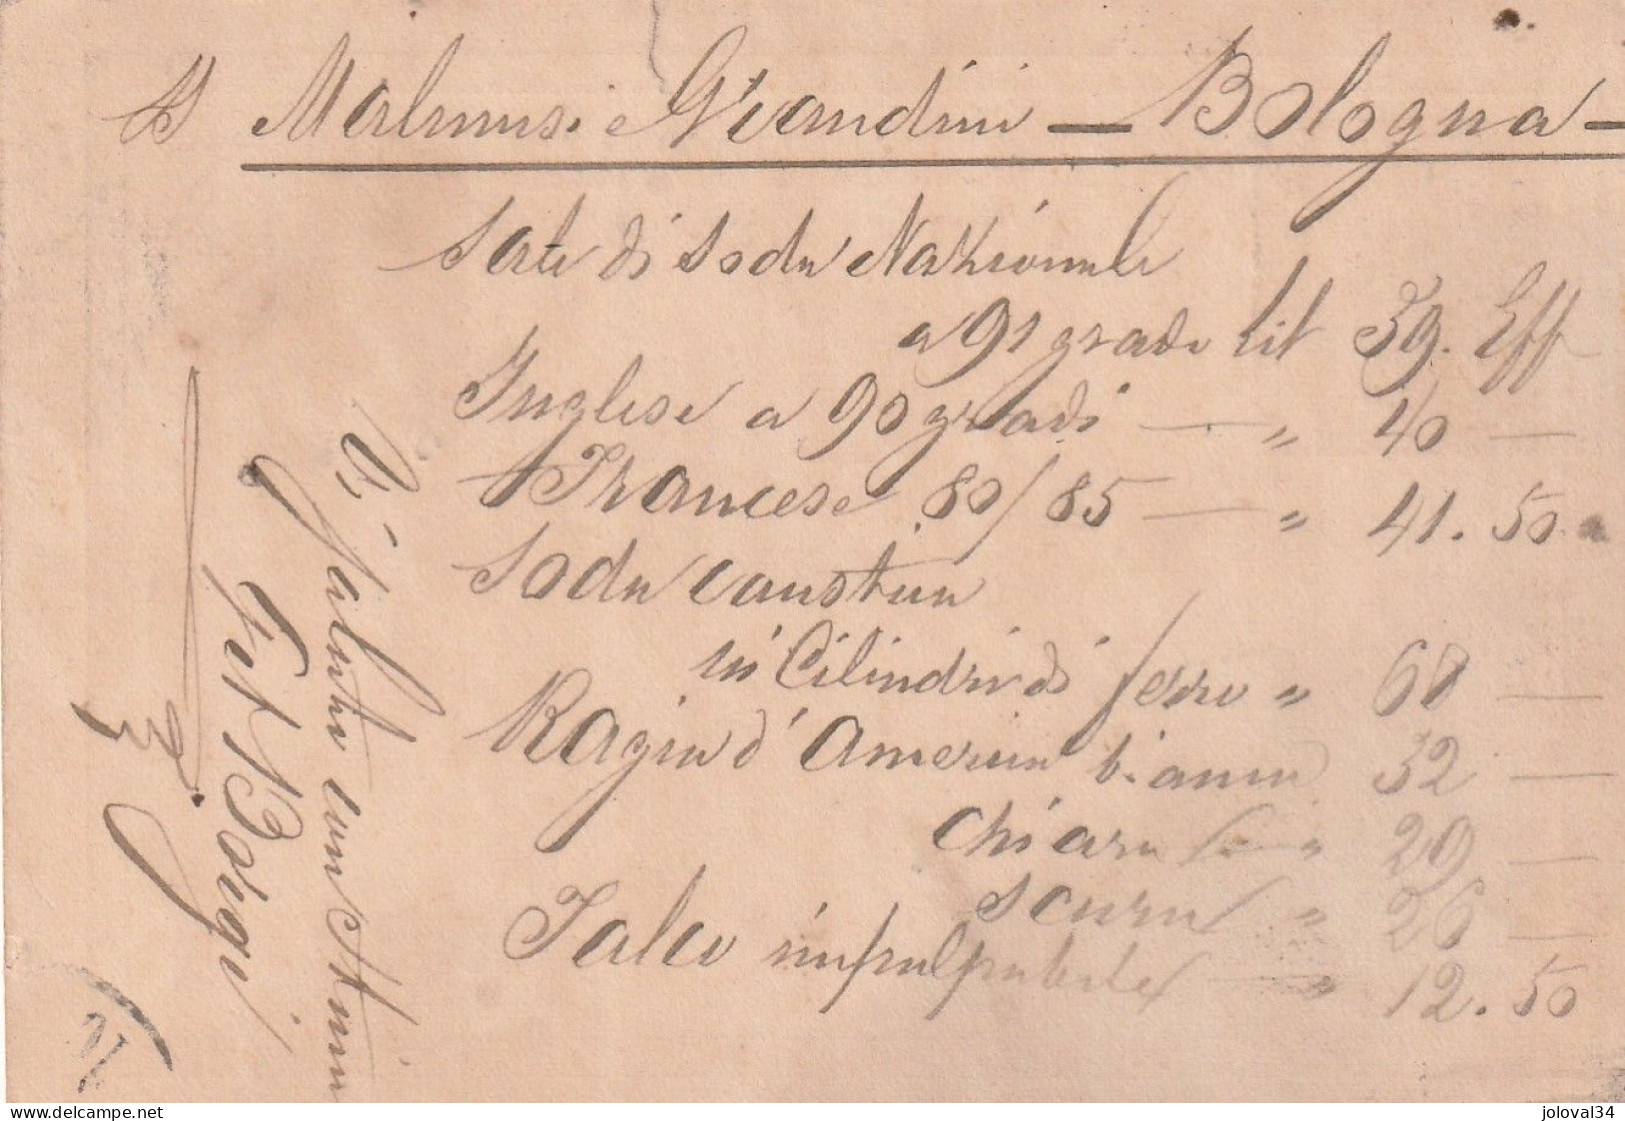 Malmusi e Grandini — Bologna —
Sale di Soda Nazionale
a 91 gradi Lit 39. Eff
Inglese a 90 gradi — " 40 —
Francese 80/85 — " 41.50
Soda caustica
in Cilindri di ferro " 68 —
Ragia d'America bianca 32 —
chiara — " 29 —
scura " 26 —
Talco impalpabile — " 12.50
Vi saluto con stima
Borgi
joloval34
www.delcampe.net